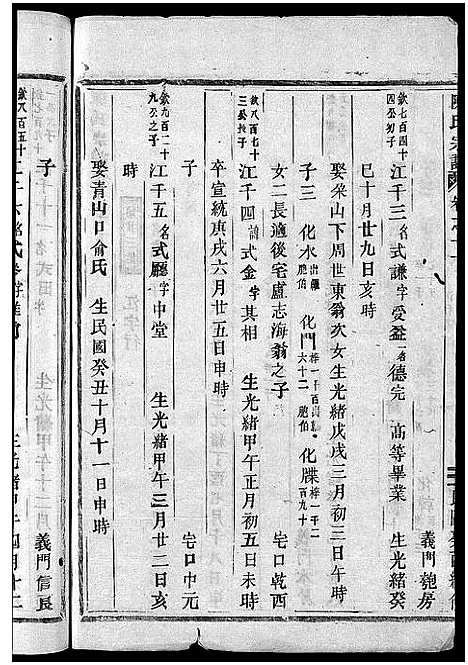 陳氏宗譜
義門 麭房
欽七百四十四公幼子 江千三 名式謙 字愛益 一名德完 高等畢業 生光緒癸
巳十月廿九日亥時
娶梁山下周世東翁次女生光緒戊戌三月初三日午時
子三 化水 出繼 化門 化牒
女二長適後宅盧志海翁之子 宅口乾西
欽八百七十三公幼子 江千四 名式金 字其相 生光緒甲午正月初五日未時
卒宣統庚戌六月廿五日申時
子 宅口中元
欽九百二十九公之子 江千五 名式廳 字中堂 生光緒甲午三月廿二日亥
時
娶青山口俞氏 生民國癸丑十月十一日申時
子 義門信長
欽八百五十